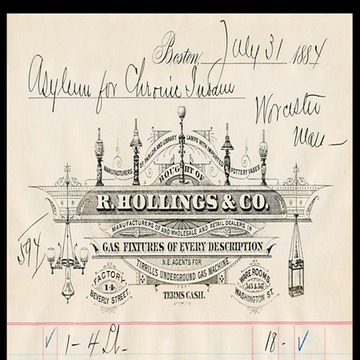 Boston, July 31 1884
Asylum for Chronic Insane
Worcester
Mass
MANUFACTURERS OF PARLOR AND LIBRARY LAMPS WITH IMPORTED POTTERY VASES
BOUGHT OF
R. HOLLINGS & CO.
MANUFACTURERS OF AND WHOLESALE AND RETAIL DEALERS IN
GAS FIXTURES OF EVERY DESCRIPTION
N.E. AGENTS FOR
TIRRILL'S UNDERGROUND GAS MACHINE.
TERMS CASH.
FACTORY
14
BEVERLY STREET.
WAREROOMS
WASHINGTON ST.
1 - 4 Lt-
18 -